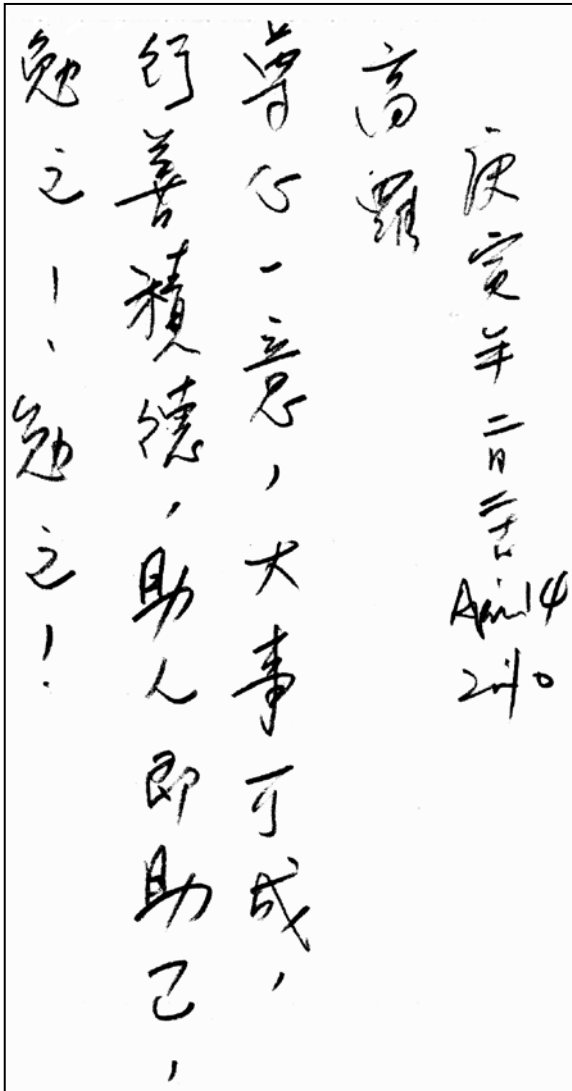 庚寅年二月 April 14 2010
高羅
專心一意，大事可成，
行善積德，助人即助己，
勉之！、勉之！